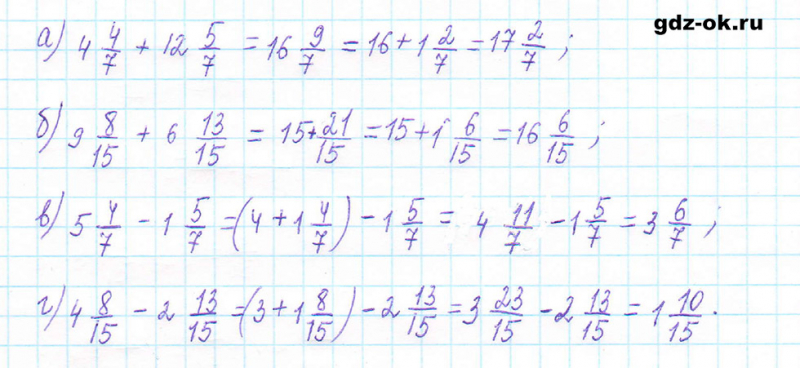 gdz-ok.ru
а) 4 4/7 + 12 5/7 = 16 9/7 = 16 + 1 2/7 = 17 2/7 ;
б) 9 8/15 + 6 13/15 = 15 + 21/15 = 15 + 1 6/15 = 16 6/15 ;
в) 5 4/7 - 1 5/7 = (4 + 1 4/7) - 1 5/7 = 4 11/7 - 1 5/7 = 3 6/7 ;
г) 4 8/15 - 2 13/15 = (3 + 1 8/15) - 2 13/15 = 3 23/15 - 2 13/15 = 1 10/15 .